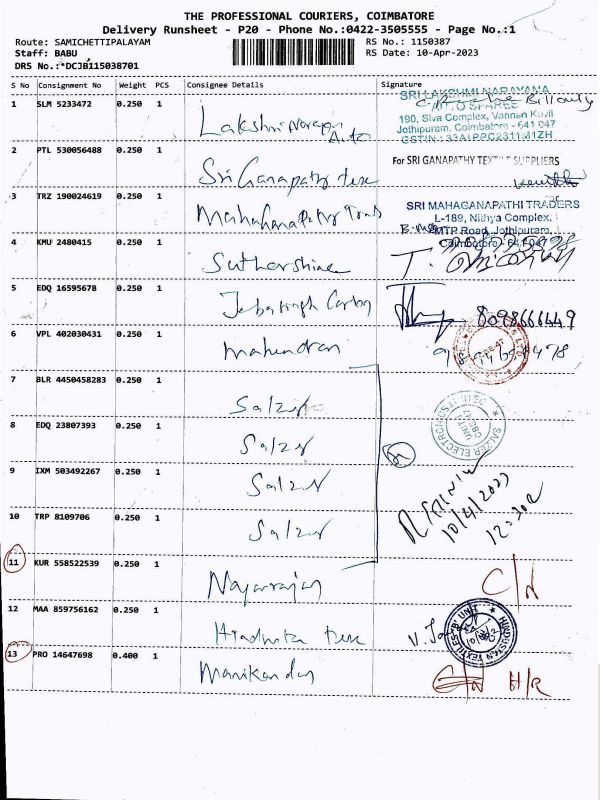 THE PROFESSIONAL COURIERS, COIMBATORE
Delivery Runsheet - P20 - Phone No.:0422-3505555 - Page No.:1
Route: SAMICHETTIPALAYAM RS No.: 1150387
Staff: BABU RS Date: 10-Apr-2023
DRS No.:*DCJB115038701
S No Consignment No Weight PCS Consignee Details Signature
1 SLM 5233472 0.250 1 Lakshmi Narayan Auto
SRI LAKSHMI NARAYANA
AUTO SPARES
190, Siva Complex, Vannan Kovil
Jothipuram, Coimbatore - 641 047
2 PTL 530056488 0.250 1 Sri Ganapathy tex
For SRI GANAPATHY TEXTILE SUPPLIERS
3 TRZ 190024619 0.250 1 Mahaganapathy Trad
SRI MAHAGANAPATHI TRADERS
L-189, Nithya Complex,
MTP Road, Jothipuram,
Coimbatore - 641 047
4 KMU 2480415 0.250 1 Sutharshine
5 EDQ 16595678 0.250 1 8098666449
6 VPL 402030431 0.250 1 Mahendran
7 BLR 4450458283 0.250 1 Salzer
SALZER ELECTRONICS LIMITED
8 EDQ 23807393 0.250 1 Salzer
9 IXM 503492267 0.250 1 Salzer
10 TRP 8109706 0.250 1 Salzer
10/4/2023
11 KUR 558522539 0.250 1 Nagarajan C/N
12 MAA 859756162 0.250 1 Hindustan tex
HINDUSTAN TEXTILES 'B' UNIT
13 PRO 14647698 0.400 1 Manikandan H/R